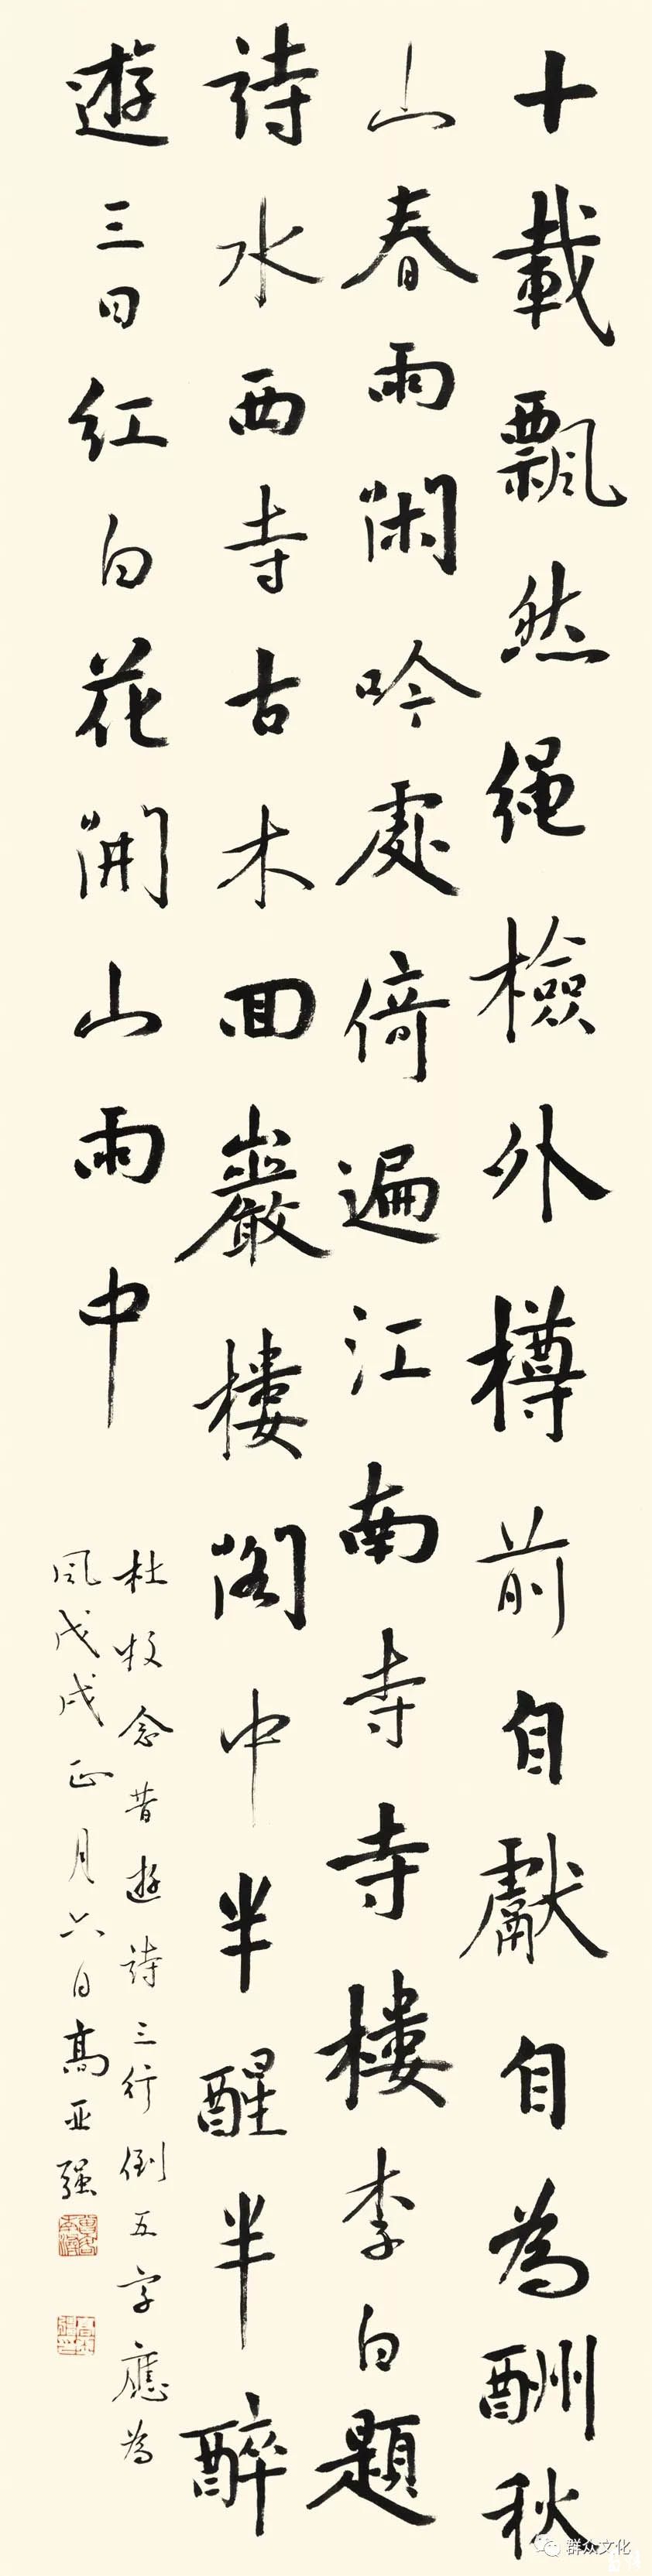 十載飄然繩檢外樽前自獻自為酬秋
山春雨閑吟處倚遍江南寺寺樓李白題
詩水西寺古木回巖樓閣中半醒半醉
遊三日紅白花開山雨中
杜牧念昔遊詩三行倒五字應為
風戊戌正月六日高亚强
群众文化